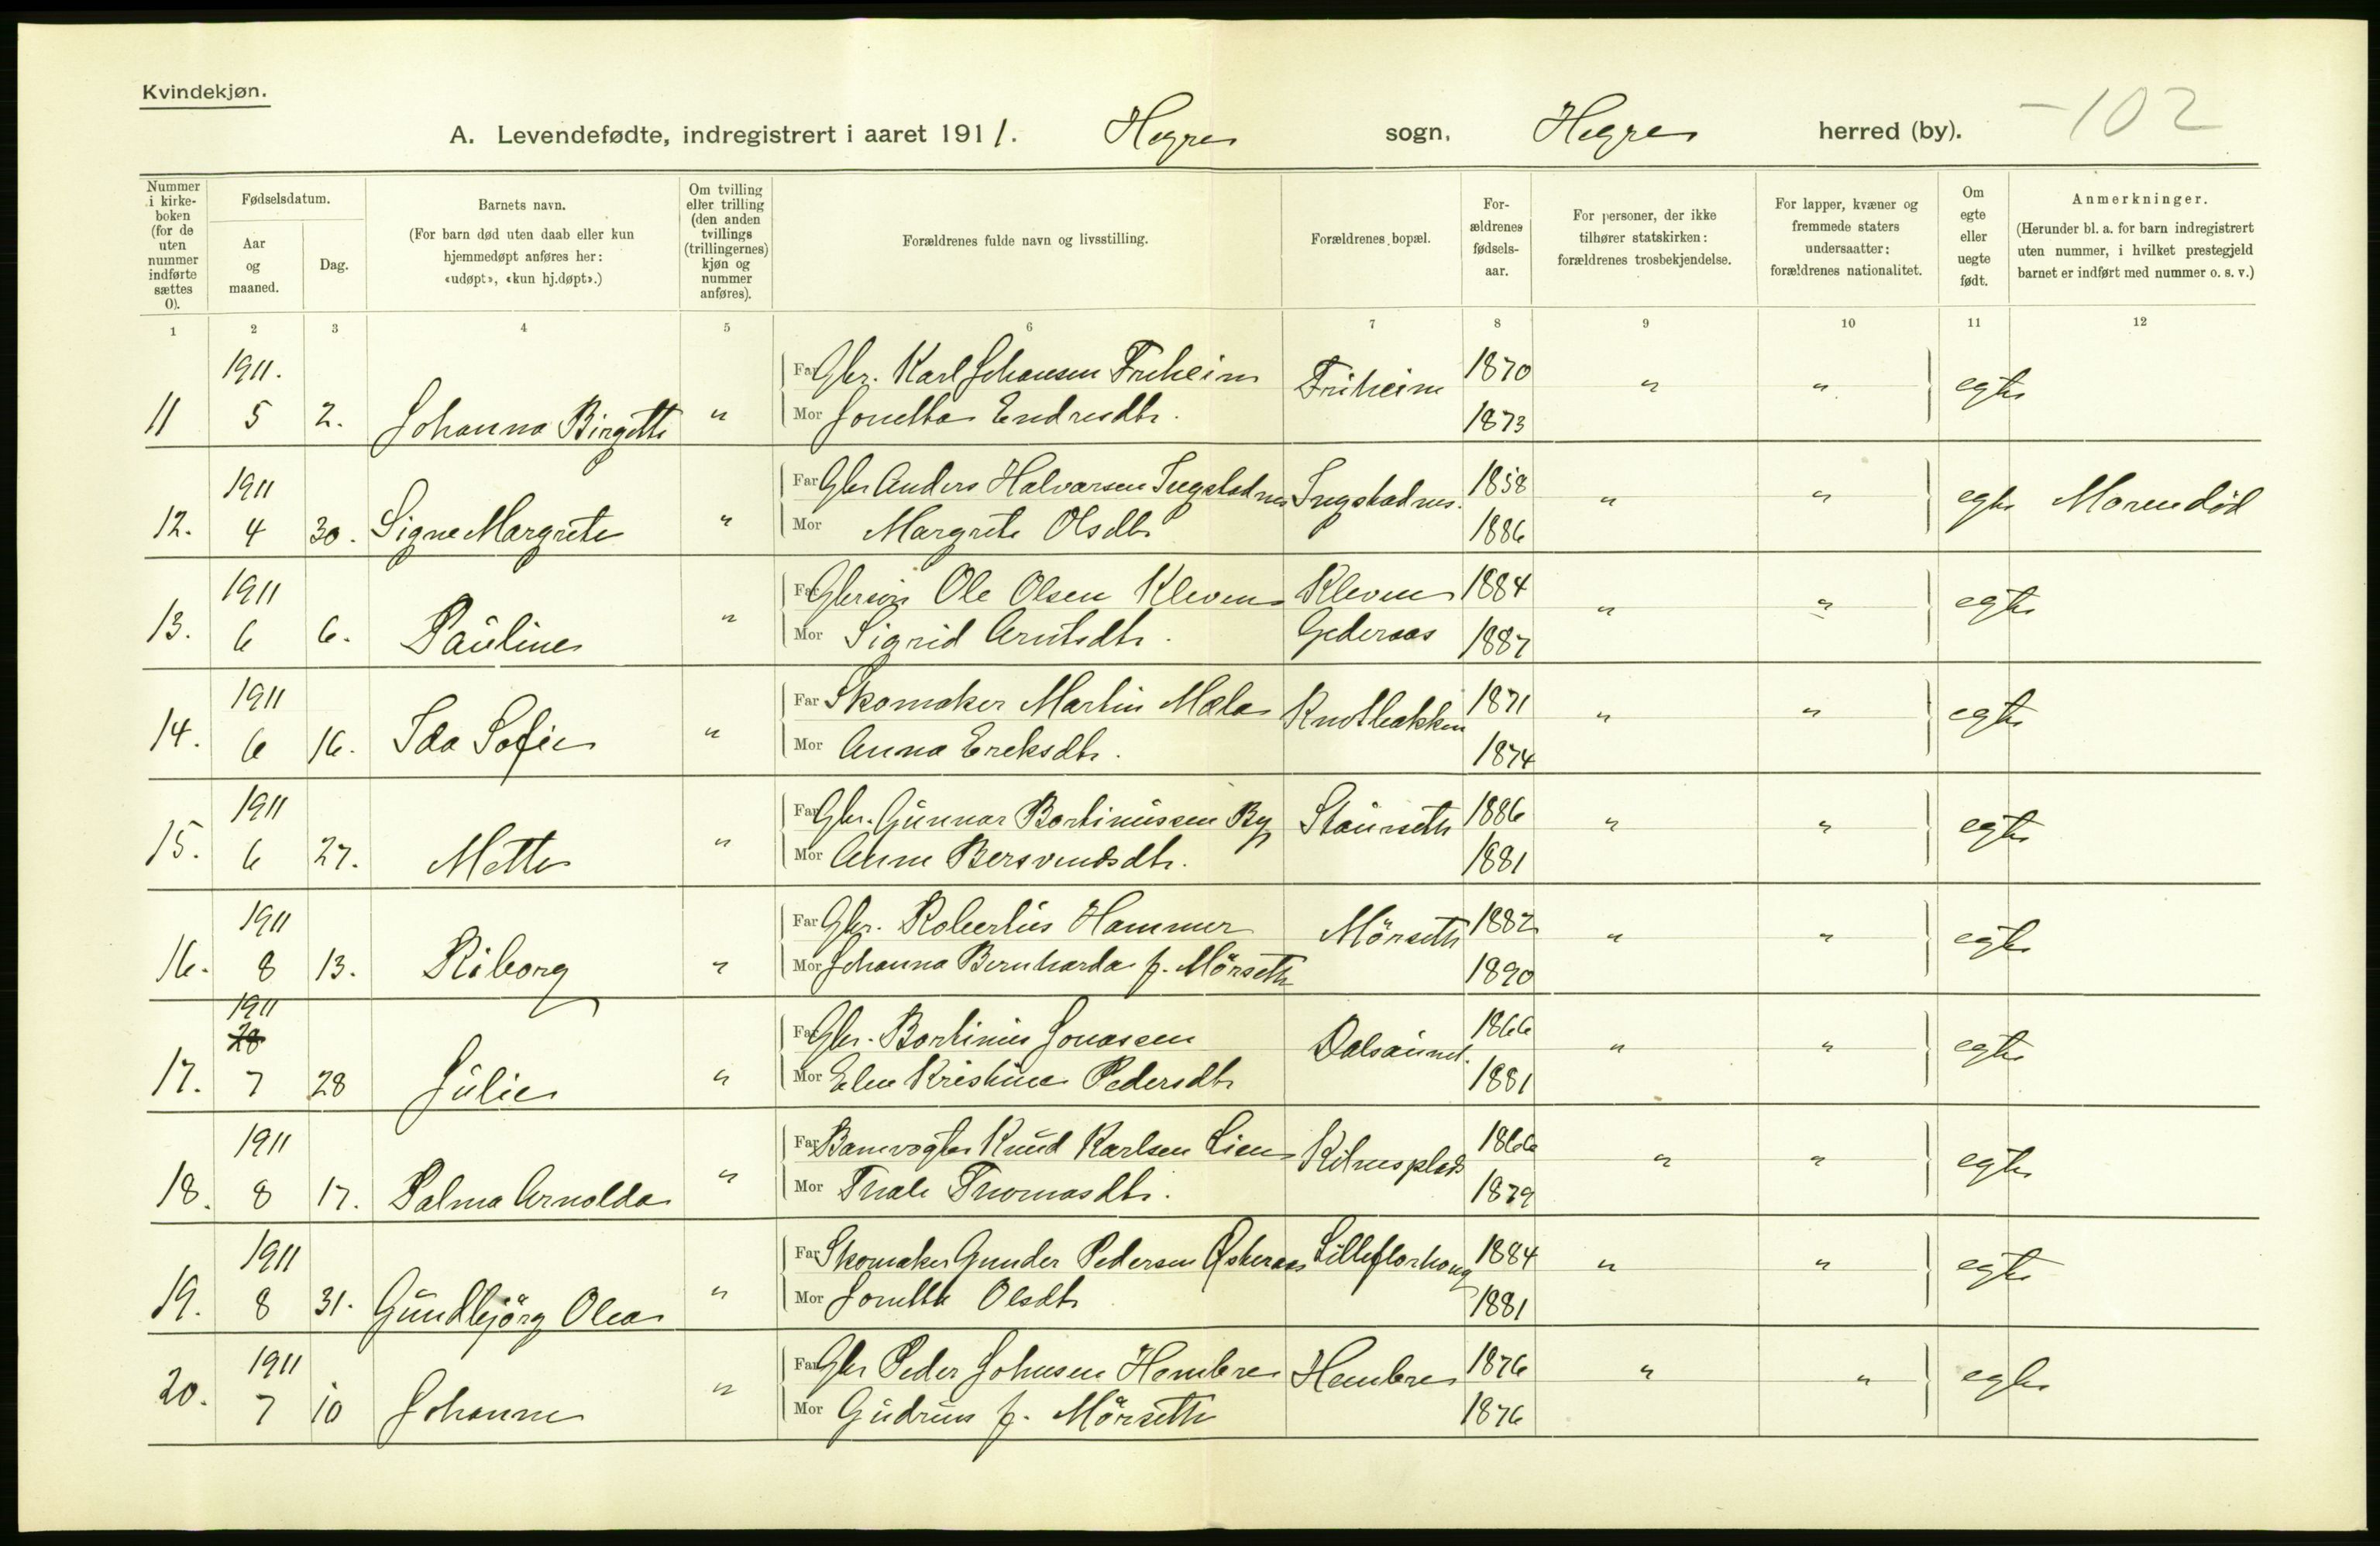 Kvindekjøn.
A. Levendefødte, indregistrert i aaret 1911. Hegre sogn, Hegre herred (by). -102
Nummer i kirkeboken (for de uten nummer indførte sættes 0).
Fødselsdatum.
Aar og maaned.
Dag.
Barnets navn.
(For barn død uten daab eller kun hjemmedøpt anføres her: «udøpt», «kun hj.døpt».)
Om tvilling eller trilling (den anden tvillings (trillingernes) kjøn og nummer anføres).
Forældrenes fulde navn og livsstilling.
Forældrenes bopæl.
Forældrenes fødselsaar.
For personer, der ikke tilhører statskirken: forældrenes trosbekjendelse.
For lapper, kvæner og fremmede staters undersaatter: forældrenes nationalitet.
Om egte eller uegte født.
Anmerkninger.
(Herunder bl. a. for barn indregistrert uten nummer, i hvilket prestegjeld barnet er indført med nummer o. s. v.)
1 2 3 4 5 6 7 8 9 10 11 12
1911. Far Gbr. Karl Johansen Friheim Friheim 1870 " " egte
11 5 2. Johanna Birgitte " Mor Jonetta Endresdtr. 1873
1911 Far Gbr Anders Halvarsen Ingstadnes Ingstadnes. 1858 " " egte Moren död
12. 4 30. Signe Margrete " Mor Margrete Olsdtr 1886
1911 Far Gbrsön Ole Olsen Kleven Kleven 1884 " " egte
13. 6 6. Pauline " Mor Sigrid Arntsdtr. Gederaas 1887
1911 Far Skomaker Martin Mæla 1871 " " egte
14. 6 16. Ida Sofie " Mor Anna Ereksdtr. 1874
1911 Far Gbr. Gunnar Bortinussen By Staurseth 1886 " " egte
15. 6 27. Mette " Mor Anne Bersvendsdtr. 1881
1911 Far Gbr. Robertus Hammer Mörseth 1882 " " egte
16. 8 13. Riborg " Mor Johanna Bernharda f. Mörseth 1890
1911 28 Far Gbr. Bortinus Jonassen Dalsaunet. 1866 " " egte
17. 7 28 Julie " Mor Elen Kristine Pedersdtr 1881
1911 Far Banevogter Knud Karlsen Lien 1866 " " egte
18. 8 17. Palma Arnolda " Mor Thale Thomasdtr. 1879
1911 Far Skomaker Gunder Pedersen Østeraas Lilleflorhaug 1884 " " egte
19. 8 31. Gundbjörg Olea " Mor Jonetta Olsdtr 1881
1911 Far Gbr Peder Johnsen Hembre Hembre 1876 " " egte
20. 7 10 Johanne " Mor Gudrun f. Mörseth 1876